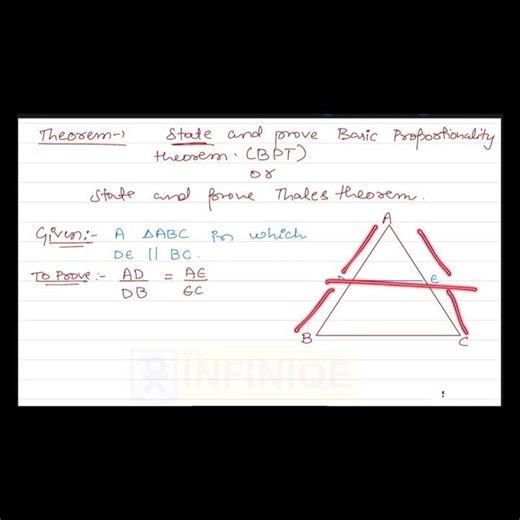 Theorem-1 State and prove Basic Proportionality
theorem. (BPT)
or
State and prove Thales theorem.
Given:- A ΔABC in which
DE || BC.
To Prove:- AD/DB = AE/EC
A
D E
B C
INFINIQE